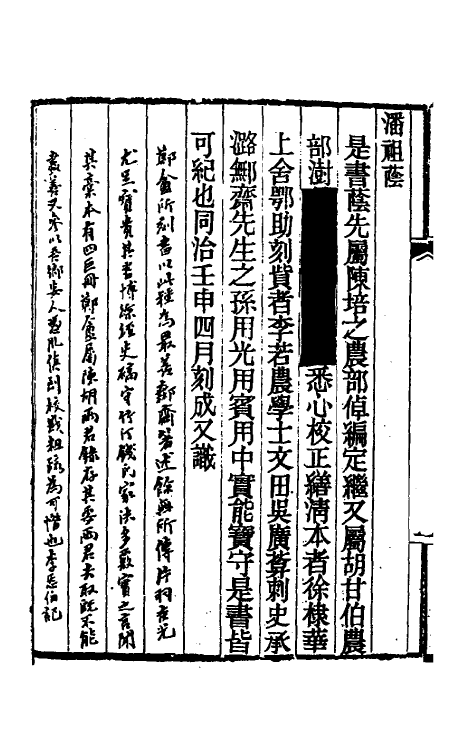 潘祖蔭
是書蔭先屬陳培之農部倬編定繼又屬胡甘伯農
部澍悉心校正繕清本者徐棣華
上舍鄂助刻貲者李若農學士文田吳廣葊刺史承
潞鄦齋先生之孫用光用賓用中實能寶守是書皆
可紀也同治壬申四月刻成又識
鄭盦所刻書以此種為最善鄦齋著述餘無所傳片羽吉光
尤足寶貴其書博綜經史確守竹汀錢氏家法多徵實之言聞
其稾本有四巨冊鄭盦屬陳胡兩君錄存其要兩君去取既不能
盡善又參以吾鄉妄人趙
校戡粗疏為可惜也李悉伯記